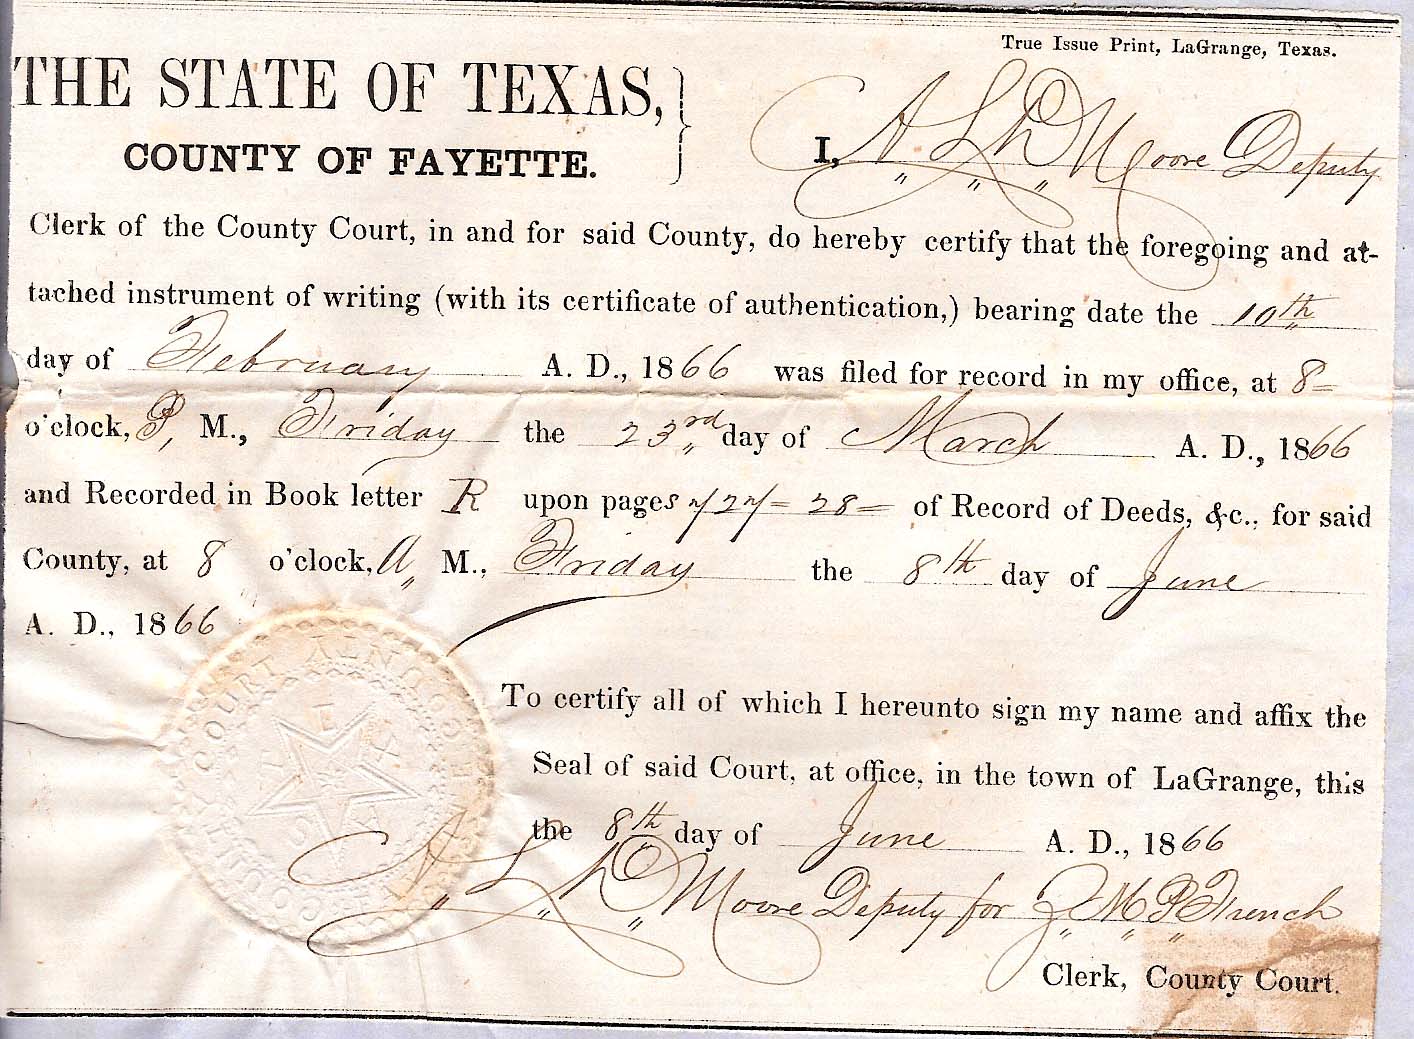 True Issue Print, LaGrange, Texas.
THE STATE OF TEXAS,
COUNTY OF FAYETTE.
I, A. L. D. Moore Deputy
Clerk of the County Court, in and for said County, do hereby certify that the foregoing and at-
tached instrument of writing (with its certificate of authentication,) bearing date the 10th
day of February A. D., 1866 was filed for record in my office, at 8=
o'clock, P, M., Friday the 23rd day of March A. D., 1866
and Recorded in Book letter R upon pages 727= 28= of Record of Deeds, &c., for said
County, at 8 o'clock, A M., Friday the 8th day of June
A. D., 1866
COUNTY COURT
TEXAS
To certify all of which I hereunto sign my name and affix the
Seal of said Court, at office, in the town of LaGrange, this
the 8th day of June A. D., 1866
A. L. D. Moore Deputy for Z. M. P. French
Clerk, County Court.